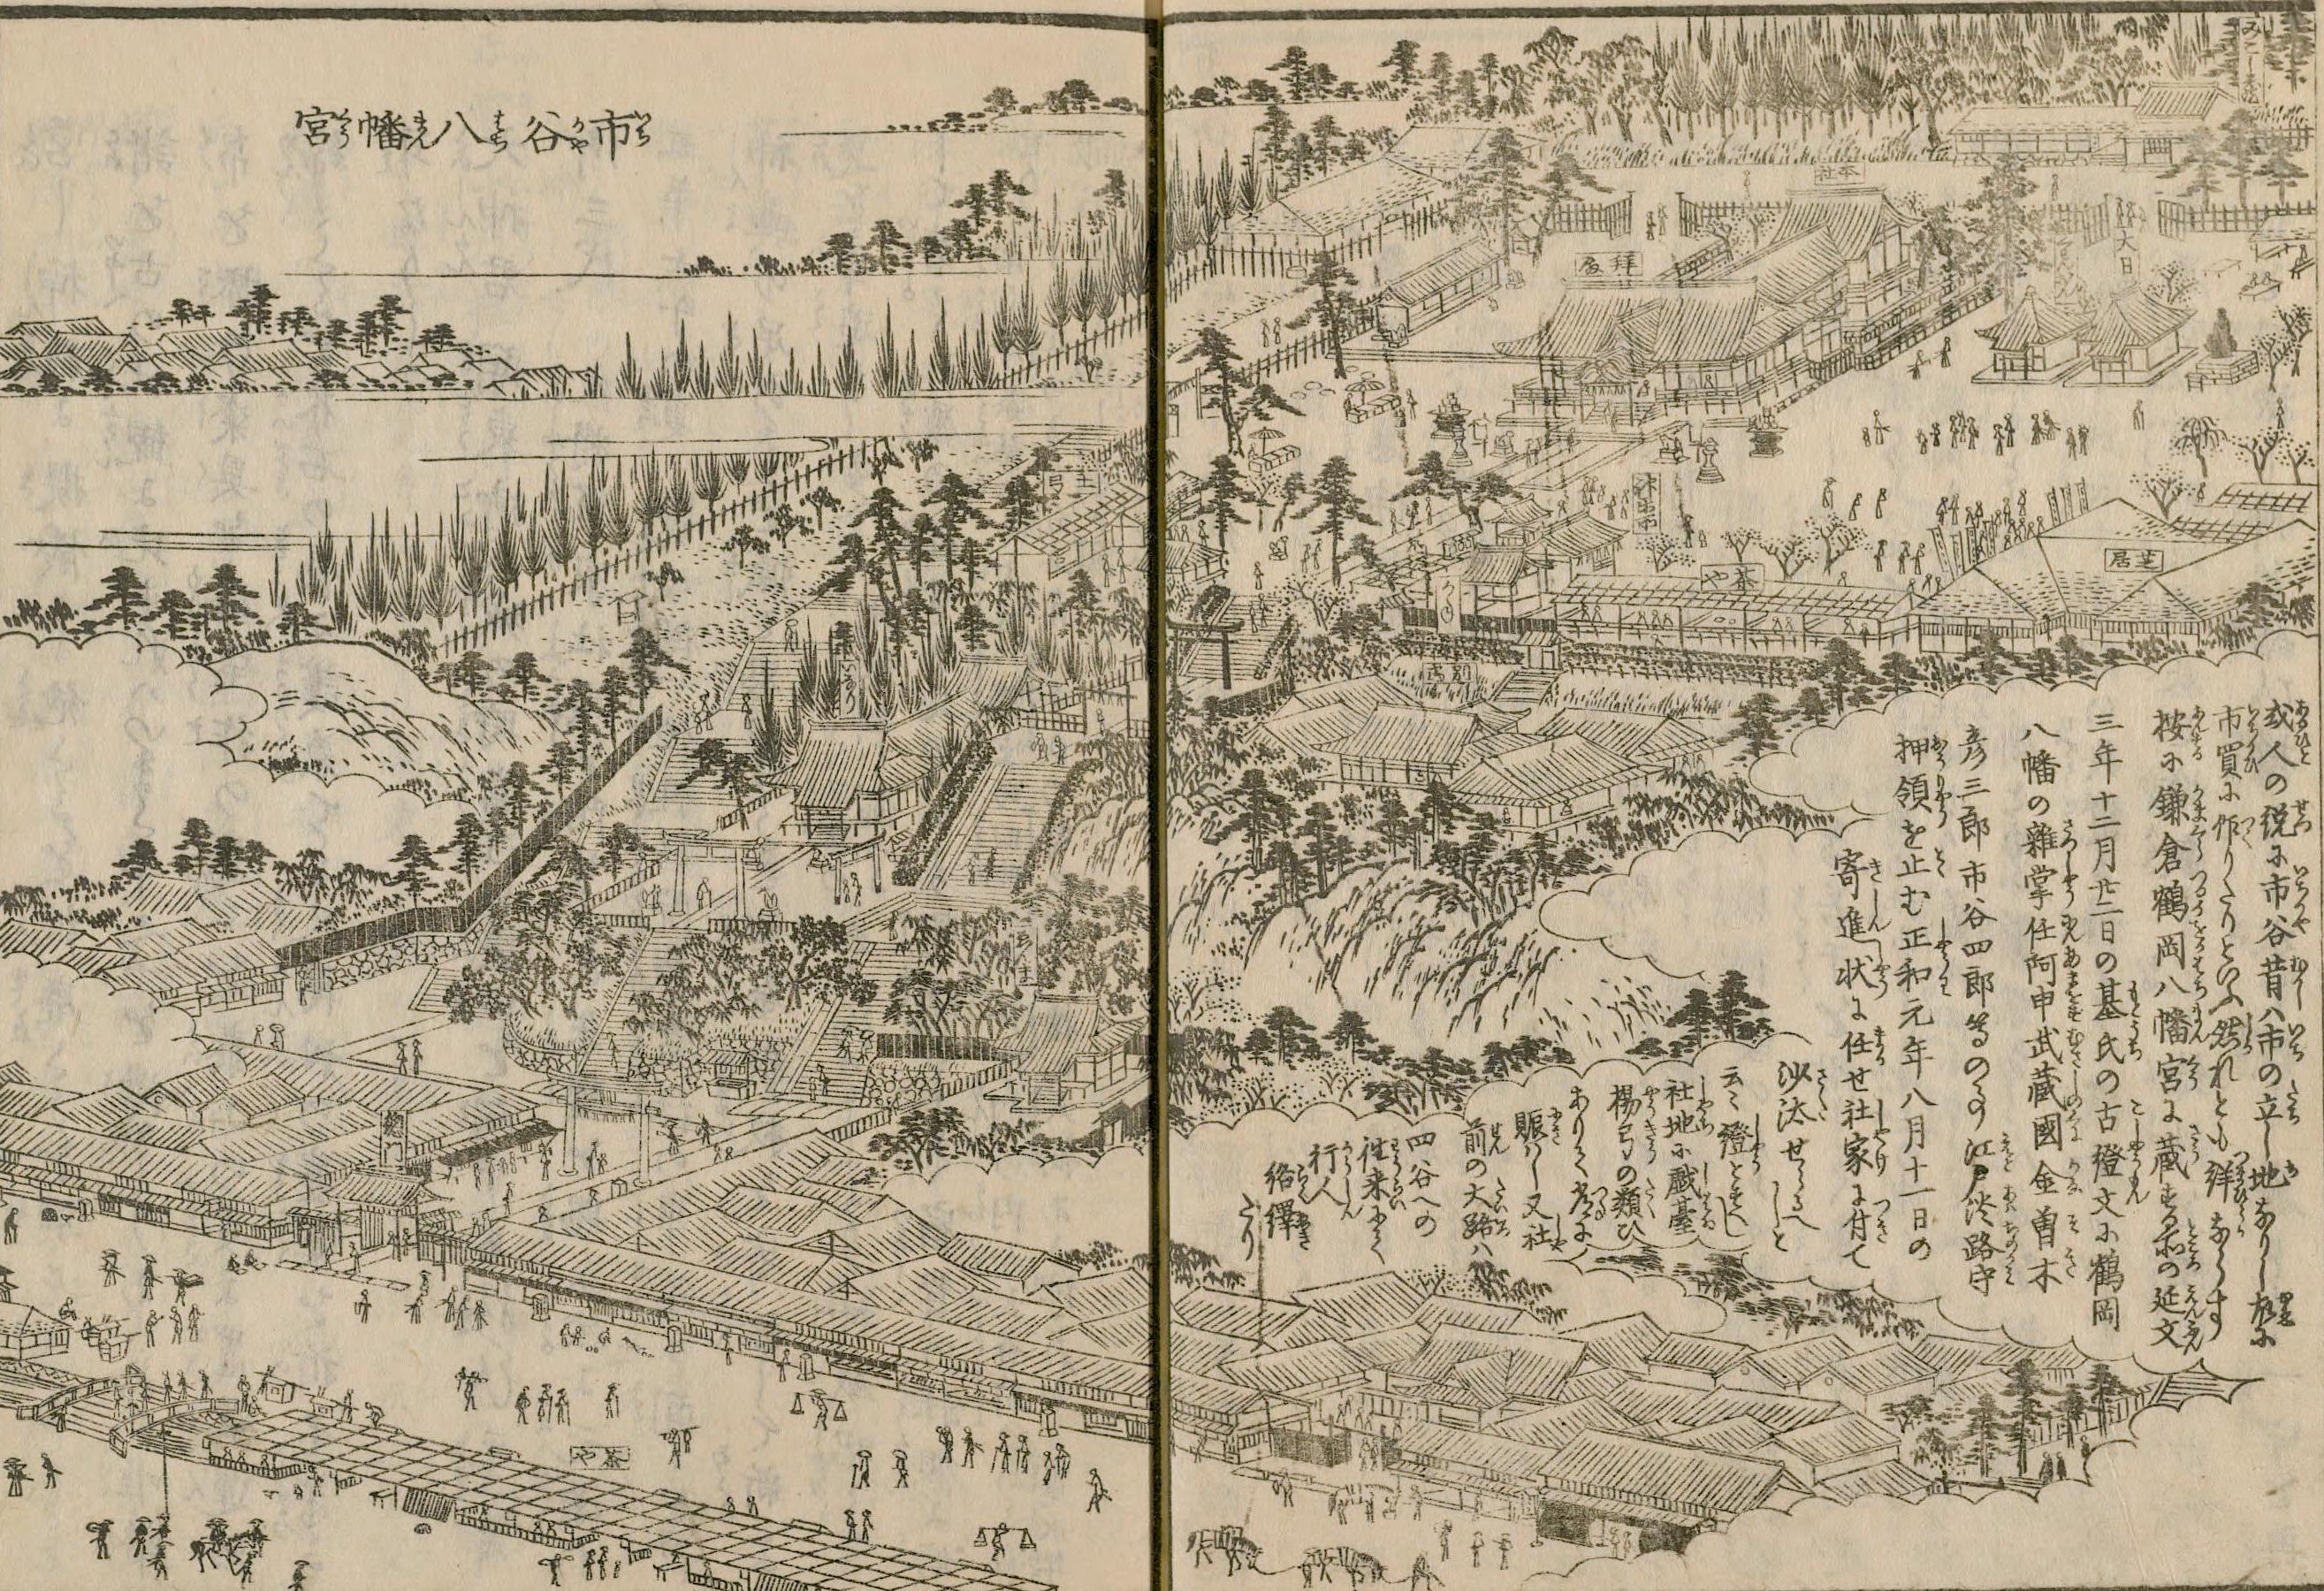 市谷八幡宮
或人の説に市谷昔ハ市の立し地なりし故に
市買に作りたりといふ然れとも詳ならす
按に鎌倉鶴岡八幡宮に蔵する所の延文
三年十二月廿二日の基氏の古證文に鶴岡
八幡の雜掌任阿申武蔵國金曽木
彦三郎市谷四郎等のゝの江戸淡路守
押領を止む正和元年八月十一日の
寄進状に任せ社家に付て
沙汰せらるへしと
云々證とすへし
社地に戯臺
楊弓の類ひ
ありて常に
賑ハし又社
前の大路ハ
四谷への
往来にて
行人
絡繹
たり
本社
拝殿
大日
芝居
茶や
別当
土弓
いなり
茶や